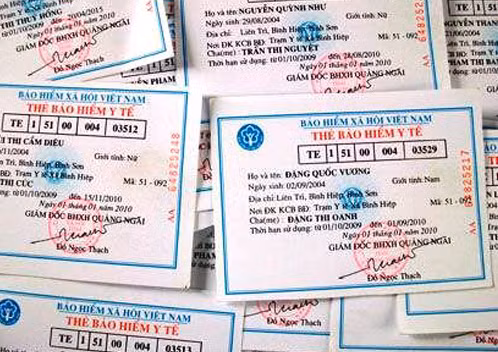 THỊ THUÝ HỒNG
đến 20/04/2015
Ngày 01 tháng 01 năm 2010
GIÁM ĐỐC BHXH QUẢNG NGÃI
Đỗ Ngọc Thạch
Họ và tên: NGUYỄN QUỲNH NHƯ
Ngày sinh: 29/08/2004 Giới tính: Nữ
Địa chỉ: Liên Trì, Bình Hiệp, Bình Sơn
Nơi ĐK KCB BĐ: Trạm Y tế Xã Bình Hiệp Mã: 51 - 092
Cha(mẹ) : TRẦN THỊ NGUYỆT
Thời hạn sử dụng: từ 01/10/2009 đến 28/08/2010
Ngày 01 tháng 01 năm 2010
GIÁM ĐỐC BHXH QUẢNG NGÃI
BẢO HIỂM XÃ HỘI VIỆT NAM
THẺ BẢO HIỂM Y TẾ
TE 1 51 00 004 03512
THỊ CẨM DIỆU
/11/2004 Giới tính: Nữ
Trì, Bình Hiệp, Bình Sơn
Trạm Y tế Xã Bình Hiệp
THỊ CÚC Mã: 51 - 092
dụng: từ 01/10/2009 đến 15/11/2010
Ngày 01 tháng 01 năm 2010
GIÁM ĐỐC BHXH QUẢNG NGÃI
Đỗ Ngọc Thạch
AA 64825248
BẢO HIỂM XÃ HỘI VIỆT NAM
THẺ BẢO HIỂM Y TẾ
TE 1 51 00 004 03529
Họ và tên: ĐẶNG QUỐC VƯƠNG
Ngày sinh: 02/09/2004 Giới tính: Nam
Địa chỉ: Liên Trì, Bình Hiệp, Bình Sơn
Nơi ĐK KCB BĐ: Trạm Y tế Xã Bình Hiệp Mã: 51 - 092
Cha(mẹ) : ĐẶNG THỊ OANH
Thời hạn sử dụng: từ 01/10/2009 đến 01/09/2010
Ngày 01 tháng 01 năm 2010
GIÁM ĐỐC BHXH QUẢNG NGÃI
Đỗ Ngọc Thạch
AA 64825217
BẢO HIỂM XÃ HỘI VIỆT NAM
THẺ BẢO HIỂM Y TẾ
TE 1 51 00 004 03513
Đỗ Ngọc Thạch